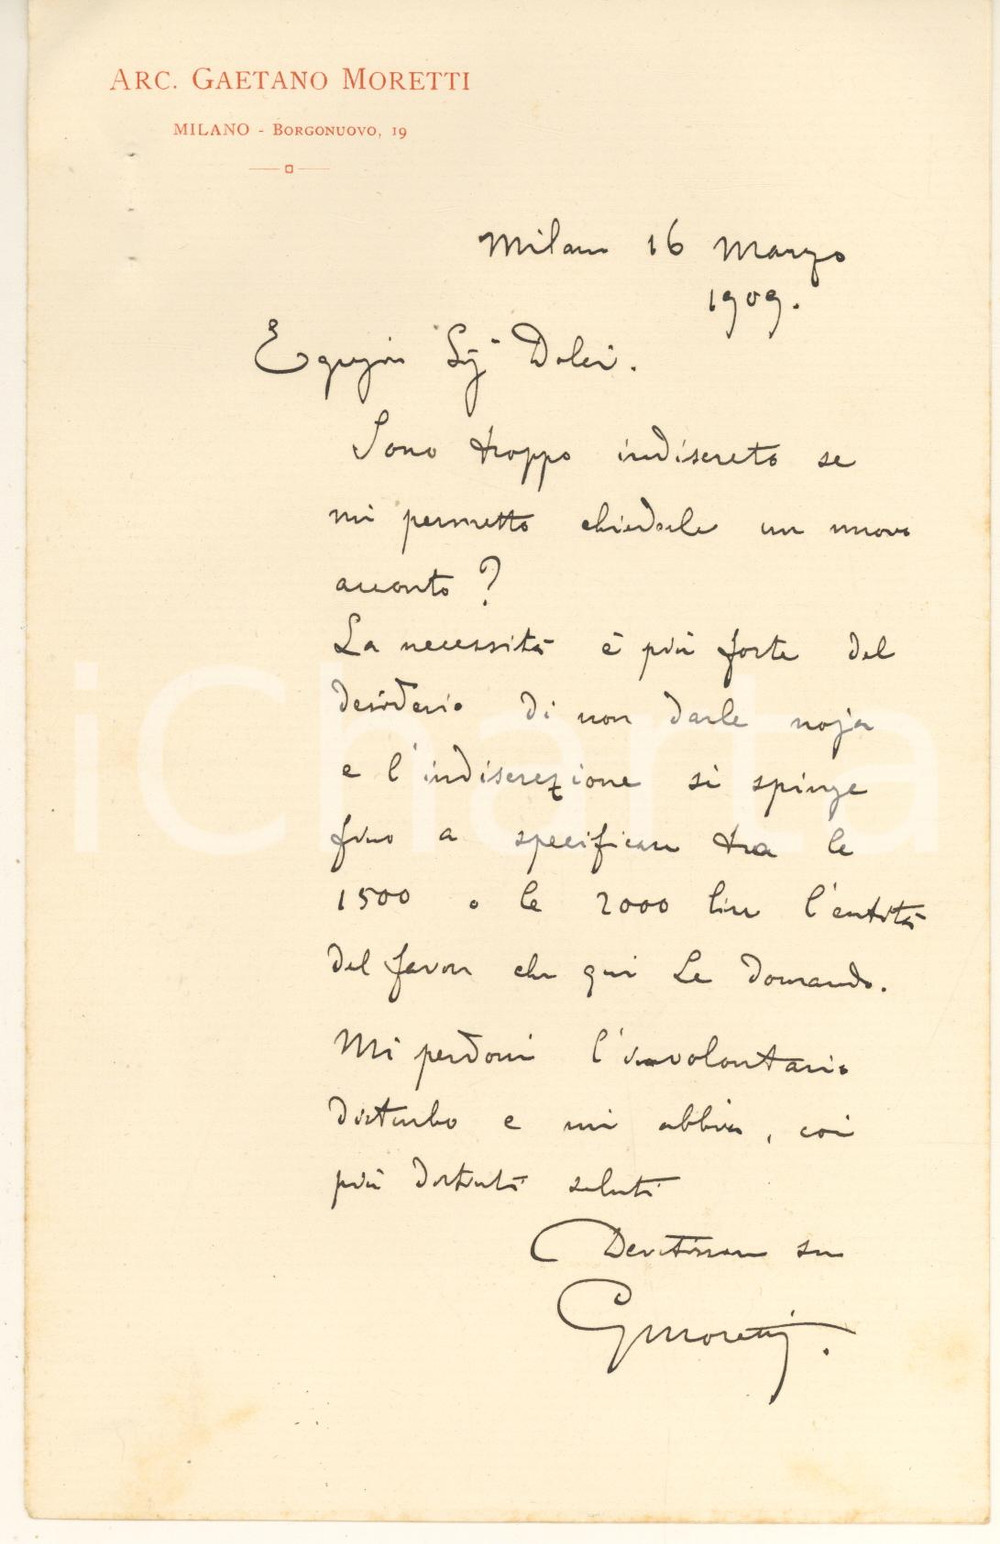 ARC. GAETANO MORETTI
MILANO - BORGONUOVO, 19
Milano 16 Marzo
1909.
Egregio Sig. Dolci.
Sono troppo indiscreto se
mi permetto chiederle un nuovo
acconto?
La necessità è più forte del
desiderio di non darle noja
e l'indiscrezione si spinge
fino a specificare tra le
1500 o le 2000 lire l'entità
del favore che qui Le domando.
Mi perdoni l'involontario
disturbo e mi abbia, coi
più distinti saluti
Devotissimo suo
GMoretti.
iCharta